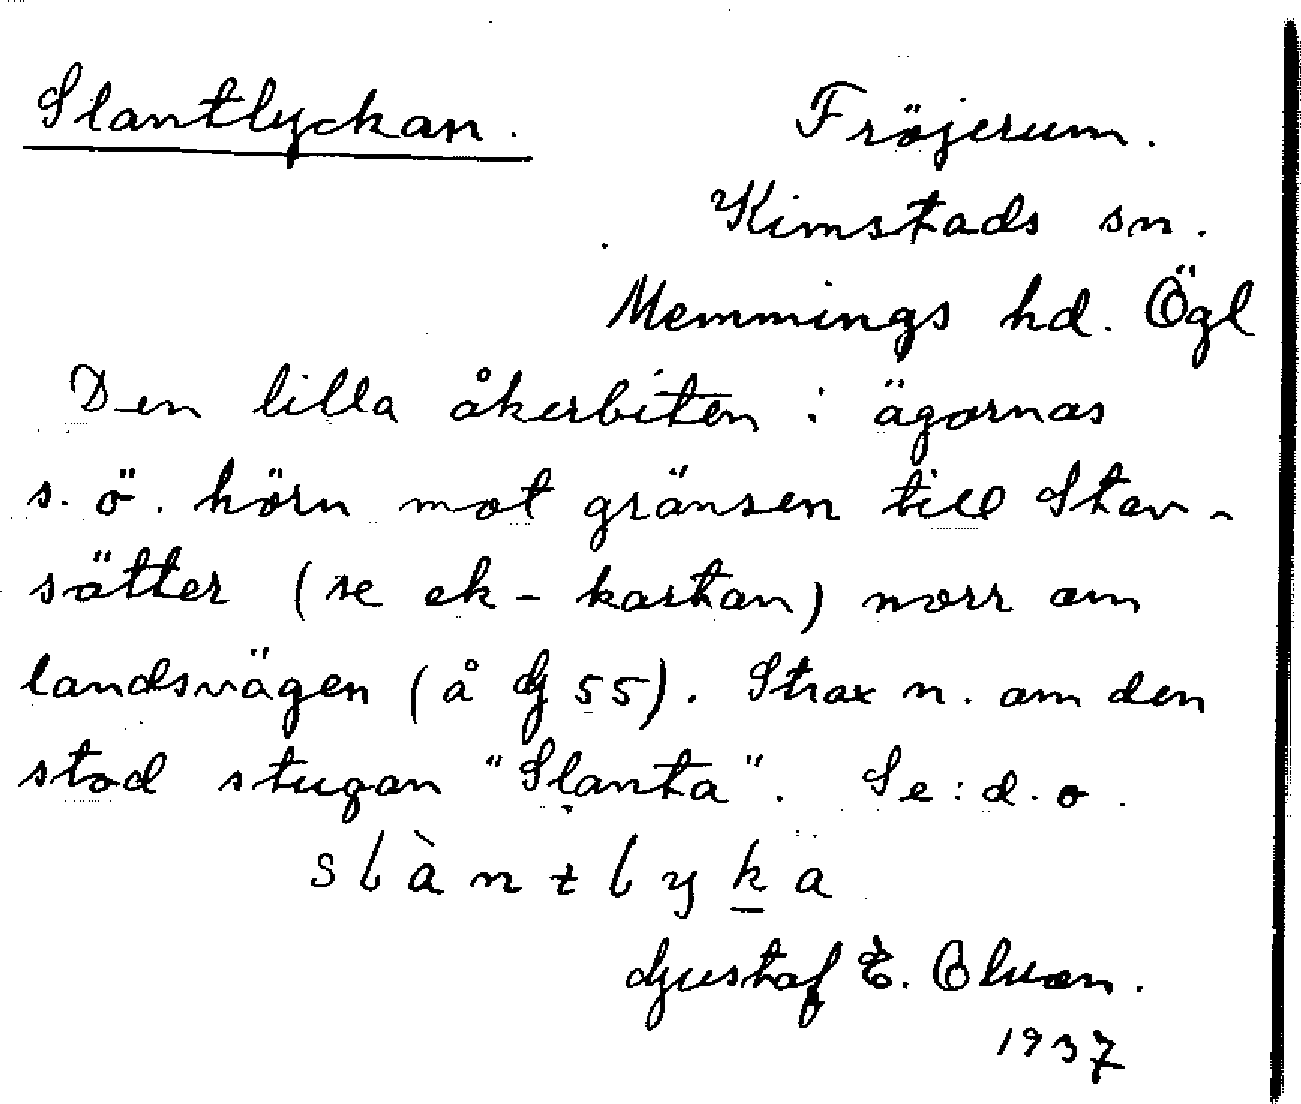 Slantlyckan.
Fröjerum.
Kimstads sn.
Memmings hd. Ögl
Den lilla åkerbiten i ägornas
s. ö. hörn mot gränsen till Stav-
sätter (se ek-kartan) norr om
landsvägen (å G 55). Strax n. om den
stod stugan "Slanta". Se: d. o.
slàntlyka
Gustaf E.
1937